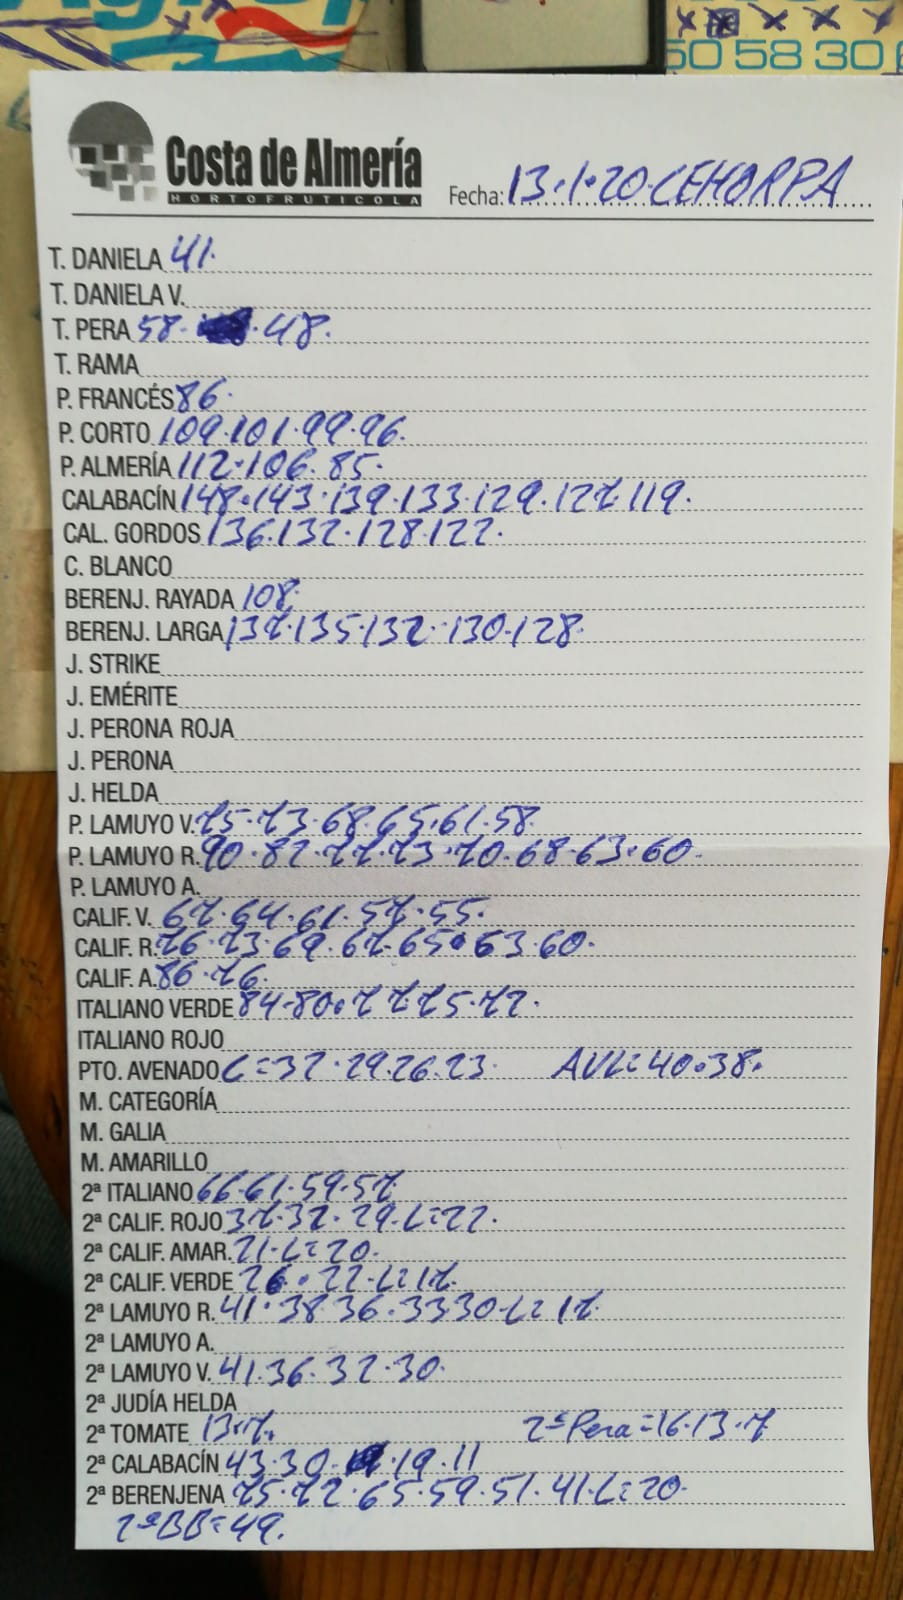 50 58 30
Costa de Almería
HORTOFRUTICOLA
Fecha: 13.1.20.CEHORPA
T. DANIELA 41.
T. DANIELA V.
T. PERA 58. .48.
T. RAMA
P. FRANCÉS 86.
P. CORTO 109.101.99.96.
P. ALMERÍA 112.106.85.
CALABACÍN 148.143.139.133.129.127.119.
CAL. GORDOS 136.132.128.122.
C. BLANCO
BERENJ. RAYADA 108.
BERENJ. LARGA 137.135.132.130.128.
J. STRIKE
J. EMÉRITE
J. PERONA ROJA
J. PERONA
J. HELDA
P. LAMUYO V. 75.73.68.65.61.58.
P. LAMUYO R. 90.82.77.73.70.68.63.60.
P. LAMUYO A.
CALIF. V. 67.64.61.57.55.
CALIF. R. 76.73.69.67.65.63.60.
CALIF. A. 86.76.
ITALIANO VERDE 84.80.77.75.72.
ITALIANO ROJO
PTO. AVENADO C=32.29.26.23. AVL=40.38.
M. CATEGORÍA
M. GALIA
M. AMARILLO
2ª ITALIANO 66.61.59.57.
2ª CALIF. ROJO 37.32.29.L=22.
2ª CALIF. AMAR. 21.L=20.
2ª CALIF. VERDE 26.22.L=17.
2ª LAMUYO R. 41.38.36.33.30.L=17.
2ª LAMUYO A.
2ª LAMUYO V. 41.36.32.30.
2ª JUDÍA HELDA
2ª TOMATE 13.7. 2ª Pera=16.13.7
2ª CALABACÍN 43.30. .19.11
2ª BERENJENA 75.72.65.59.51.41.L=20.
2ªBB=49.